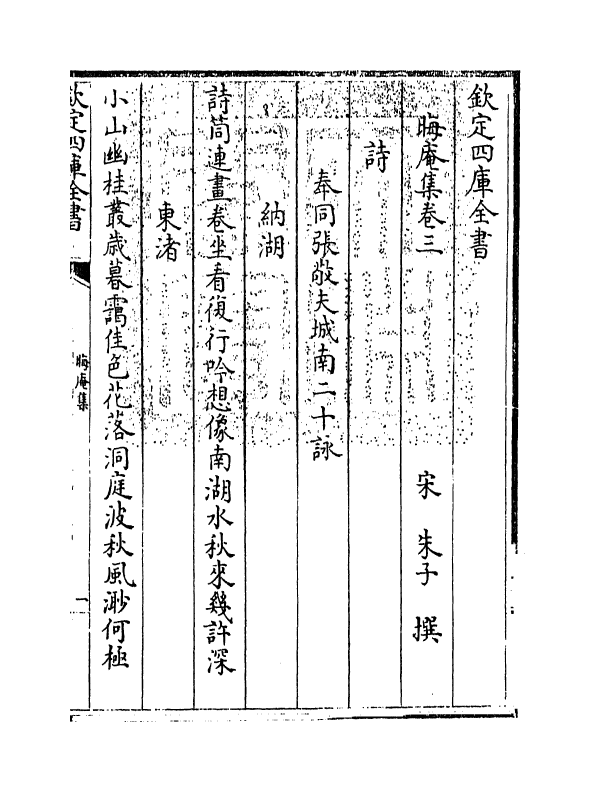 欽定四庫全書
晦庵集卷三
宋 朱子 撰
詩
奉同張敬夫城南二十詠
納湖
詩筒連畫卷坐看復行吟想像南湖水秋來幾許深
東渚
小山幽桂叢歲暮靄佳色花落洞庭波秋風渺何極
欽定四庫全書
晦庵集
一